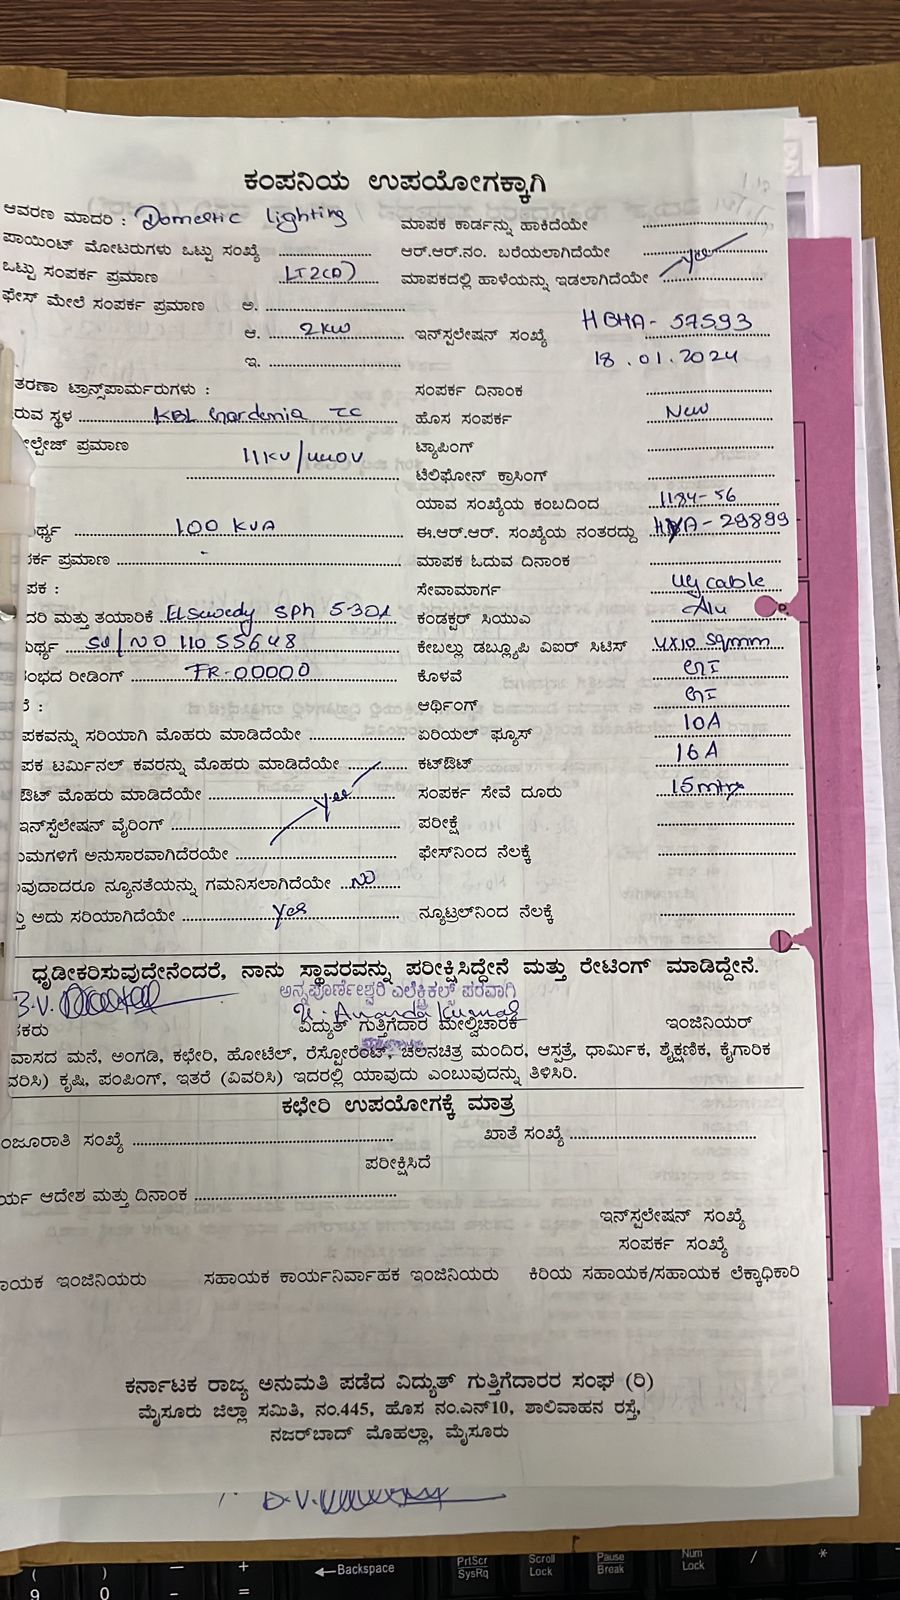 ಕಂಪನಿಯ ಉಪಯೋಗಕ್ಕಾಗಿ
ಆವರಣ ಮಾದರಿ : Domestic lighting ಮಾಪಕ ಕಾರ್ಡನ್ನು ಹಾಕಿದೆಯೇ
ಪಾಯಿಂಟ್ ಮೋಟರುಗಳು ಒಟ್ಟು ಸಂಖ್ಯೆ ಆರ್.ಆರ್.ನಂ. ಬರೆಯಲಾಗಿದೆಯೇ
ಒಟ್ಟು ಸಂಪರ್ಕ ಪ್ರಮಾಣ LT2(a) ಮಾಪಕದಲ್ಲಿ ಹಾಳೆಯನ್ನು ಇಡಲಾಗಿದೆಯೇ yes
ಫೇಸ್ ಮೇಲೆ ಸಂಪರ್ಕ ಪ್ರಮಾಣ ಅ.
ಆ. 2KW ಇನ್‌ಸ್ಟಲೇಷನ್ ಸಂಖ್ಯೆ HBHA-57593
ಇ. 18.01.2024
ತರಣಾ ಟ್ರಾನ್ಸ್‌ಪಾರ್ಮರುಗಳು : ಸಂಪರ್ಕ ದಿನಾಂಕ
ರುವ ಸ್ಥಳ KBL Gardenia TC ಹೊಸ ಸಂಪರ್ಕ New
ೋಲ್ಟೇಜ್ ಪ್ರಮಾಣ 11KV/440V ಟ್ಯಾಪಿಂಗ್
ಟೆಲಿಫೋನ್ ಕ್ರಾಸಿಂಗ್
ಯಾವ ಸಂಖ್ಯೆಯ ಕಂಬದಿಂದ 1184-56
ರ್ಥ್ಯ 100 KVA ಈ.ಆರ್.ಆರ್. ಸಂಖ್ಯೆಯ ನಂತರದ್ದು -29899
ರ್ಕ ಪ್ರಮಾಣ - ಮಾಪಕ ಓದುವ ದಿನಾಂಕ
ಪಕ : ಸೇವಾಮಾರ್ಗ UG cable
ದರಿ ಮತ್ತು ತಯಾರಿಕೆ Elsewedy Sph 5-30A ಕಂಡಕ್ಟರ್ ಸಿಯುಎ Alu
ರ್ಥ್ಯ Sl/NO 11055648 ಕೇಬಲ್ಲು ಡಬ್ಲ್ಯೂಪಿ ವಿಐರ್ ಸಿಟಿಸ್ 4x10 sqmm
ಂಭದ ರೀಡಿಂಗ್ FR-00000 ಕೊಳವೆ GI
: ಆರ್ಥಿಂಗ್ GI
ಪಕವನ್ನು ಸರಿಯಾಗಿ ಮೊಹರು ಮಾಡಿದೆಯೇ ಏರಿಯಲ್ ಫ್ಯೂಸ್ 10A
ಪಕ ಟರ್ಮಿನಲ್ ಕವರನ್ನು ಮೊಹರು ಮಾಡಿದೆಯೇ ಕಟ್‌ಔಟ್ 16A
ಔಟ್ ಮೊಹರು ಮಾಡಿದೆಯೇ yes ಸಂಪರ್ಕ ಸೇವೆ ದೂರು 15mtrs
ಇನ್‌ಸ್ಟೆಲೇಷನ್ ವೈರಿಂಗ್ ಪರೀಕ್ಷೆ
ಮಗಳಿಗೆ ಅನುಸಾರವಾಗಿದೆರಯೇ ಫೇಸ್‌ನಿಂದ ನೆಲಕ್ಕೆ
ವುದಾದರೂ ನ್ಯೂನತೆಯನ್ನು ಗಮನಿಸಲಾಗಿದೆಯೇ NO
ತು ಅದು ಸರಿಯಾಗಿದೆಯೇ yes ನ್ಯೂಟ್ರಲ್‌ನಿಂದ ನೆಲಕ್ಕೆ
ಧೃಡೀಕರಿಸುವುದೇನೆಂದರೆ, ನಾನು ಸ್ಥಾವರವನ್ನು ಪರೀಕ್ಷಿಸಿದ್ದೇನೆ ಮತ್ತು ರೇಟಿಂಗ್ ಮಾಡಿದ್ದೇನೆ.
B.V. ಅನ್ನಪೂರ್ಣೇಶ್ವರಿ ಎಲೆಕ್ಟ್ರಿಕಲ್ಸ್ ಪರವಾಗಿ
Ananda Kumar
ಕರು ವಿದ್ಯುತ್ ಗುತ್ತಿಗೆದಾರ ಮೇಲ್ವಿಚಾರಕ ಇಂಜಿನಿಯರ್
ವಾಸದ ಮನೆ, ಅಂಗಡಿ, ಕಛೇರಿ, ಹೋಟೆಲ್, ರೆಸ್ಟೋರೆಂಟ್, ಚಲನಚಿತ್ರ ಮಂದಿರ, ಆಸ್ಪತ್ರೆ, ಧಾರ್ಮಿಕ, ಶೈಕ್ಷಣಿಕ, ಕೈಗಾರಿಕ
ವರಿಸಿ) ಕೃಷಿ, ಪಂಪಿಂಗ್, ಇತರೆ (ವಿವರಿಸಿ) ಇದರಲ್ಲಿ ಯಾವುದು ಎಂಬುವುದನ್ನು ತಿಳಿಸಿರಿ.
ಕಛೇರಿ ಉಪಯೋಗಕ್ಕೆ ಮಾತ್ರ
ಂಜೂರಾತಿ ಸಂಖ್ಯೆ ಖಾತೆ ಸಂಖ್ಯೆ
ಪರೀಕ್ಷಿಸಿದೆ
ರ್ಯ ಆದೇಶ ಮತ್ತು ದಿನಾಂಕ
ಇನ್‌ಸ್ಟಲೇಷನ್ ಸಂಖ್ಯೆ
ಸಂಪರ್ಕ ಸಂಖ್ಯೆ
ಾಯಕ ಇಂಜಿನಿಯರು ಸಹಾಯಕ ಕಾರ್ಯನಿರ್ವಾಹಕ ಇಂಜಿನಿಯರು ಕಿರಿಯ ಸಹಾಯಕ/ಸಹಾಯಕ ಲೆಕ್ಕಾಧಿಕಾರಿ
ಕರ್ನಾಟಕ ರಾಜ್ಯ ಅನುಮತಿ ಪಡೆದ ವಿದ್ಯುತ್ ಗುತ್ತಿಗೆದಾರರ ಸಂಘ (ರಿ)
ಮೈಸೂರು ಜಿಲ್ಲಾ ಸಮಿತಿ, ನಂ.445, ಹೊಸ ನಂ.ಎನ್10, ಶಾಲಿವಾಹನ ರಸ್ತೆ,
ನಜರ್‌ಬಾದ್ ಮೊಹಲ್ಲಾ, ಮೈಸೂರು
B.V.
( ) — + ←Backspace PrtScr Scroll Pause Num / *
9 0 - = SysRq Lock Break Lock